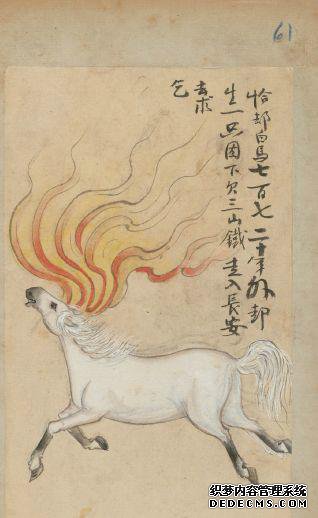 61
恰却白馬七百七 二十年外却
生一只因下欠三山鐵 走入長安
去求
乞
织梦内容管理系统
DEDECMS.COM